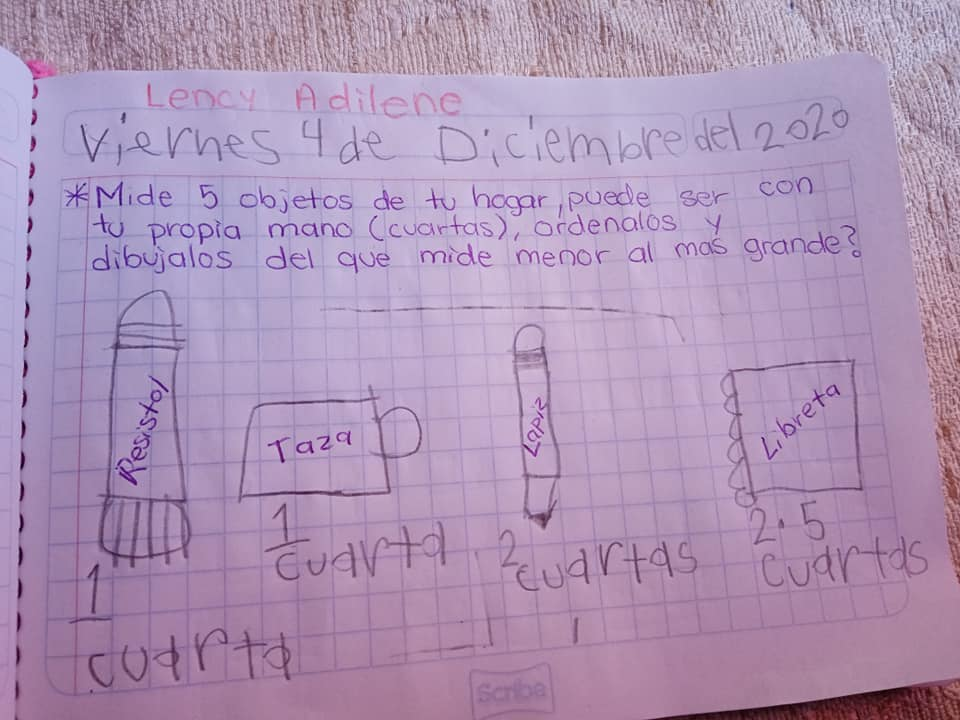 Lency Adilene
Viernes 4 de Diciembre del 2020
*Mide 5 objetos de tu hogar, puede ser con
tu propia mano (cuartas), ordenalos y
dibujalos del que mide menor al mas grande?
Resistol
Taza
Lapiz
Libreta
1
cuarta
1
cuarta
2
cuartas
2.5
cuartas
Scribe